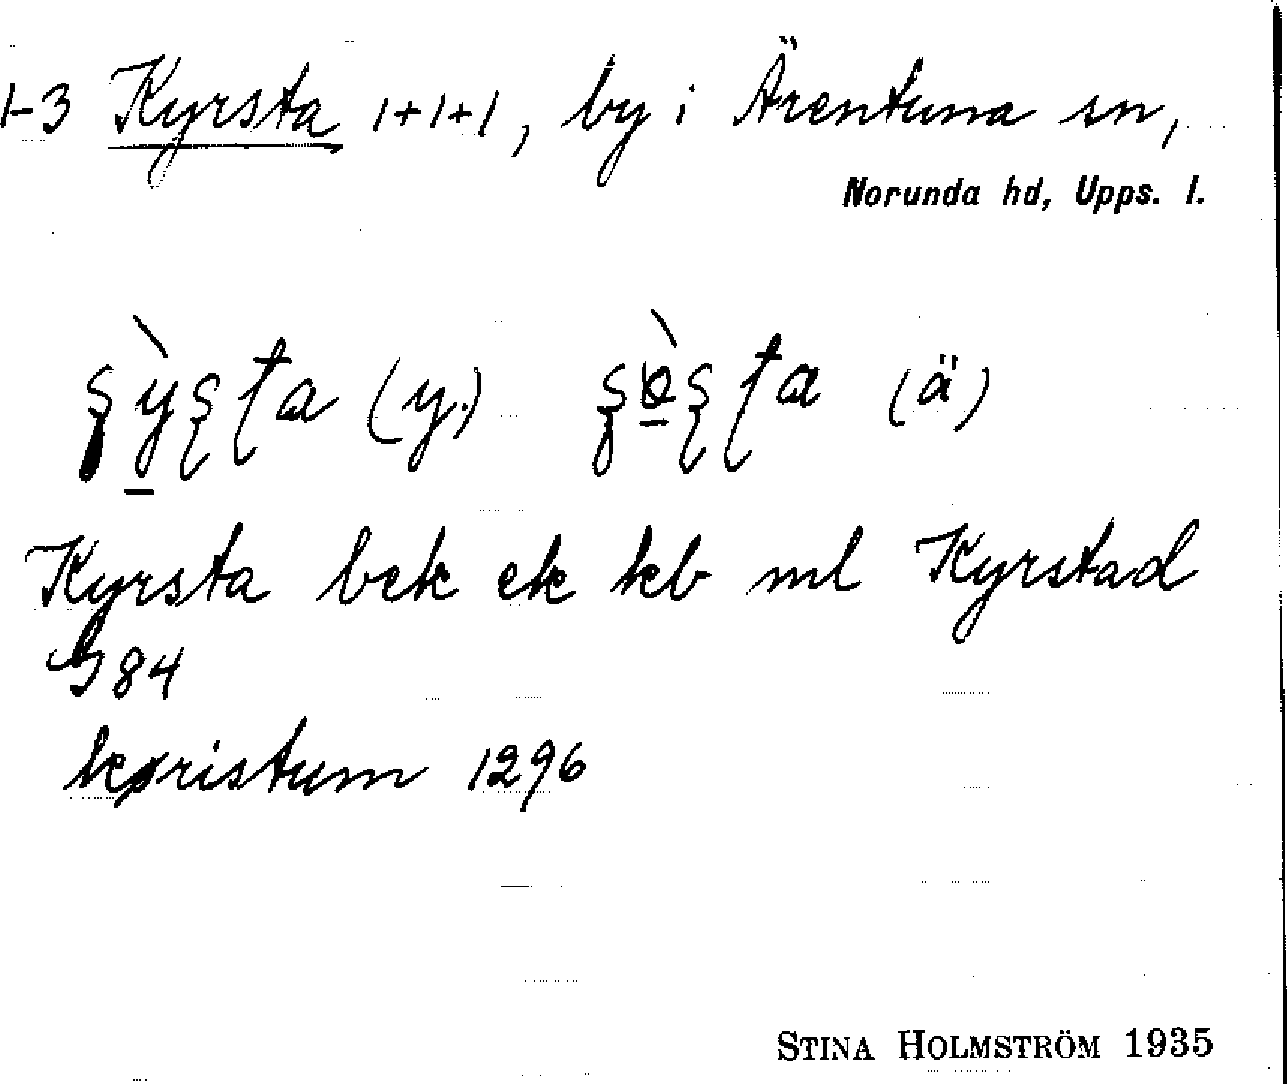 1-3 Kyrsta 1+1+1, by i Ärentuna sn,
Norunda hd, Upps. l.
(y.) (ä)
Kyrsta bek ek kb ml Kyrstad
G 84
kyristum 1296
STINA HOLMSTRÖM 1935